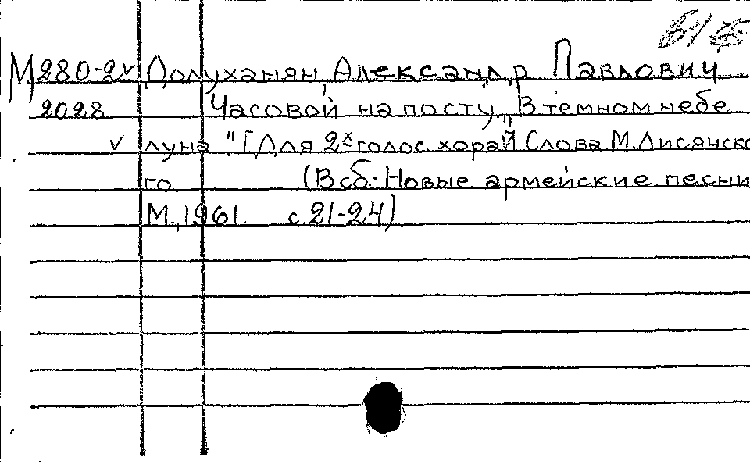 М280-2 Долуханян, Александр Павлович
2028 Часовой на посту „В темном небе
луна" [Для 2х голос. хора] Слова М. Лисянско
го (В сб: Новые армейские песни
М, 1961 с 21-24)